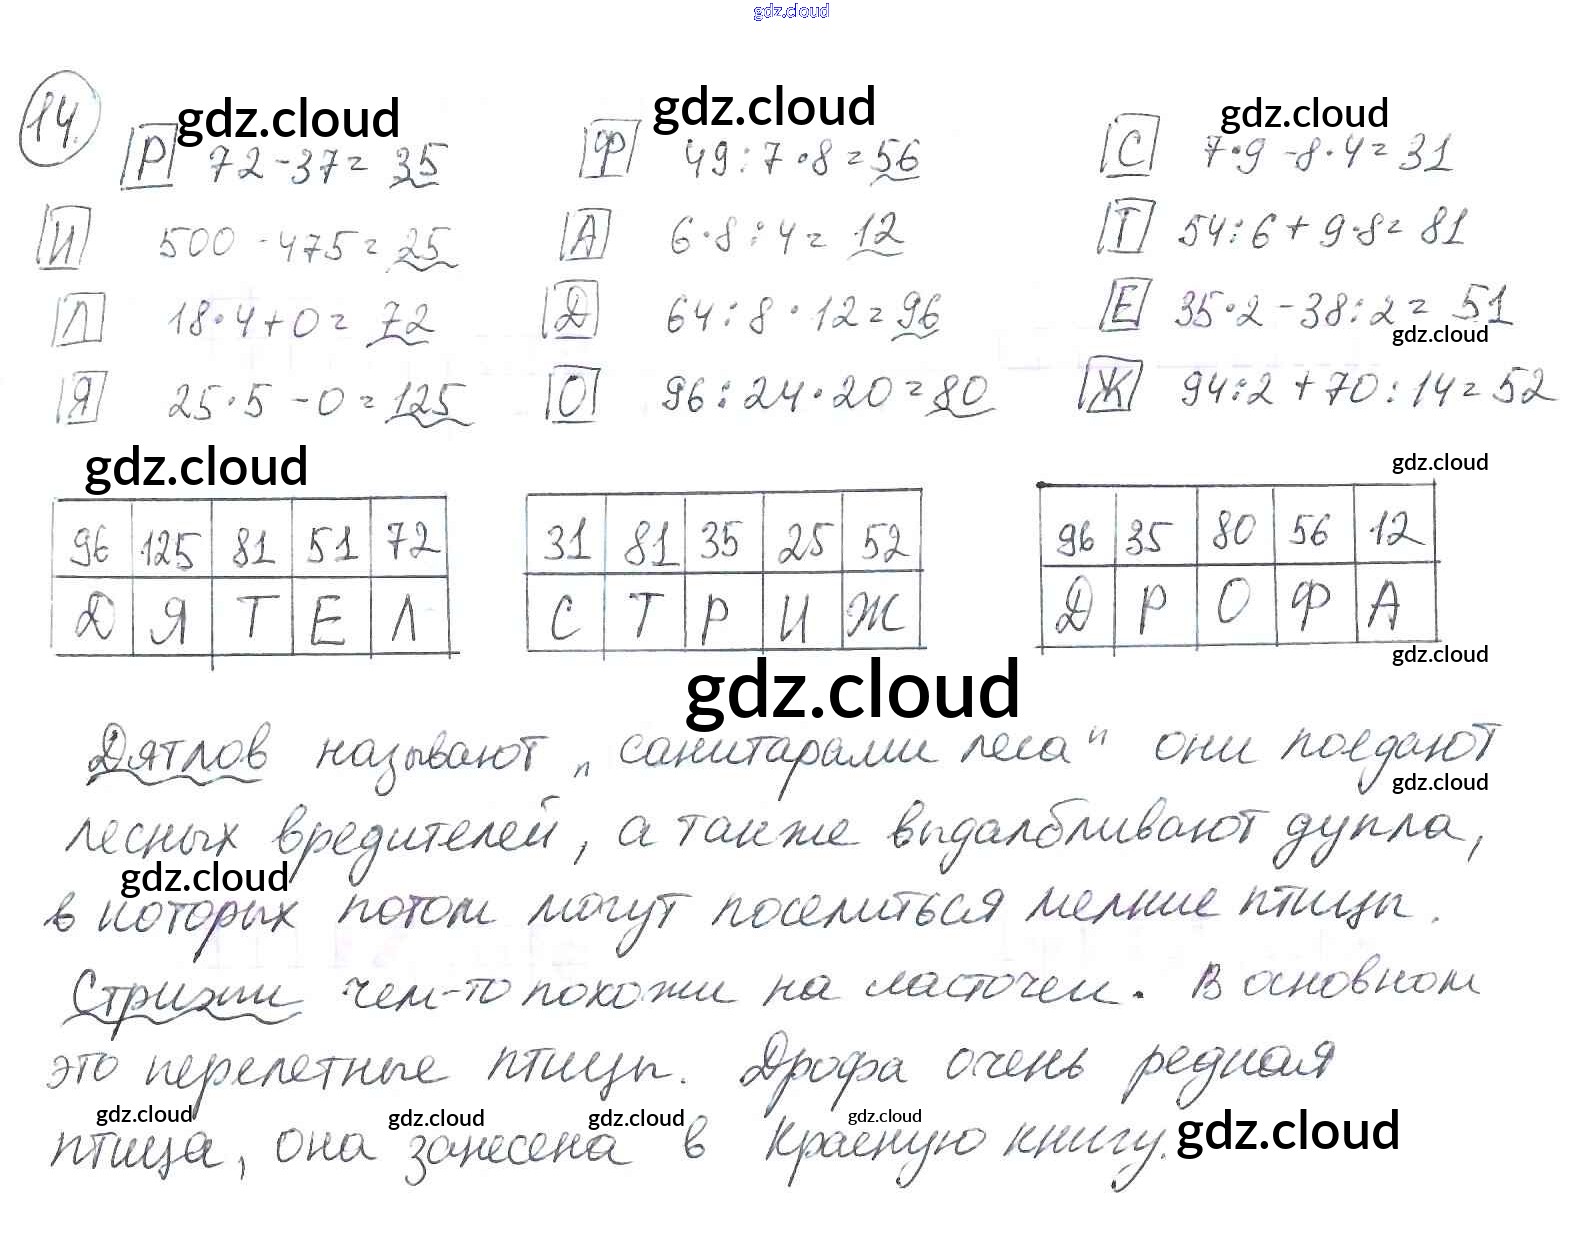 gdz.cloud
14.
gdz.cloud gdz.cloud gdz.cloud
Р 72-37= 35 Ф 49:7·8=56 С 7·9-8·4=31
И 500-475=25 А 6·8:4=12 Т 54:6+9·8=81
Л 18·4+0=72 Д 64:8·12=96 Е 35·2-38:2=51
gdz.cloud
Я 25·5-0=125 О 96:24·20=80 Ж 94:2+70:14=52
gdz.cloud gdz.cloud
96 125 81 51 72 31 81 35 25 52 96 35 80 56 12
Д Я Т Е Л С Т Р И Ж Д Р О Ф А
gdz.cloud gdz.cloud
Дятлов называют „санитарами леса" они поедают
gdz.cloud
лесных вредителей, а также выдалбливают дупла,
gdz.cloud
в которых потом могут поселиться мелкие птицы.
Стрижи чем-то похожи на ласточек. В основном
это перелетные птицы. Дрофа очень редкая
gdz.cloud gdz.cloud gdz.cloud gdz.cloud gdz.cloud
птица, она занесена в Красную книгу.